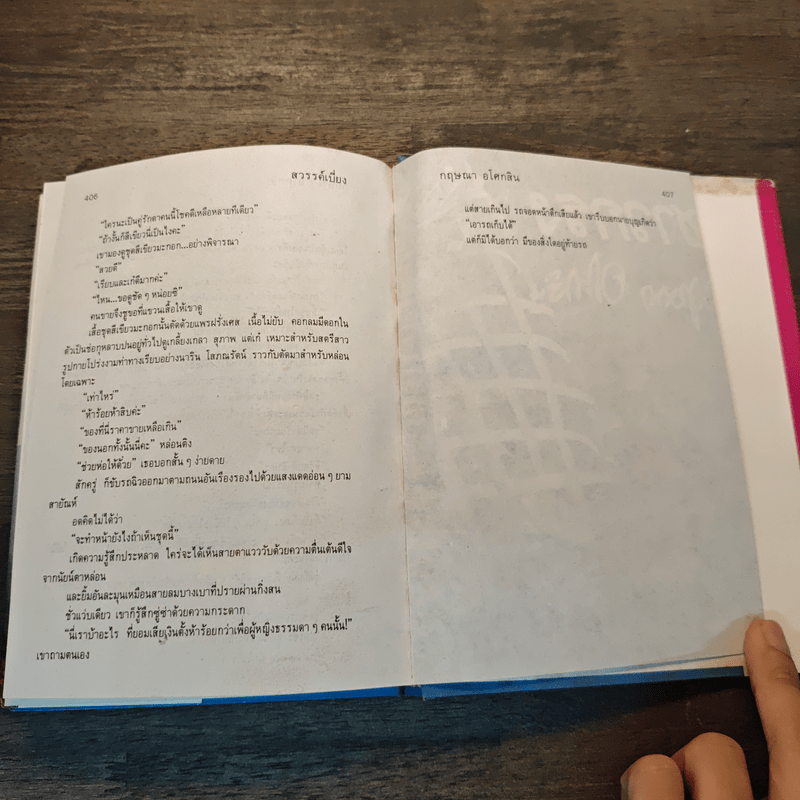 406
สวรรค์เบี่ยง
“ใครนะเป็นคู่รักตาคนนี้โชคดีเหลือหลายทีเดียว”
“ถ้างั้นก็สีเขียวนี่เป็นไงคะ”
เขามองดูชุดสีเขียวมะกอก...อย่างพิจารณา
“สวยดี”
“เรียบและเก๋ดีมากค่ะ”
“ไหน...ขอดูชัด ๆ หน่อยซิ”
คนขายจึงชูขอที่แขวนเสื้อให้เขาดู
เสื้อชุดสีเขียวมะกอกนั้นตัดด้วยแพรฝรั่งเศส เนื้อไม่ยับ คอกลมมีดอกใน
ตัวเป็นช่อกุหลาบปนอยู่ทั่วไปดูเกลี้ยงเกลา สุภาพ แต่เก๋ เหมาะสำหรับสตรีสาว
รูปกายโปร่งงามท่าทางเรียบอย่างนาริน โสภณรัตน์ ราวกับตัดมาสำหรับหล่อน
โดยเฉพาะ
“เท่าไหร่”
“ห้าร้อยห้าสิบค่ะ”
“ของที่นี่ราคาขายเหลือเกิน”
“ของนอกทั้งนั้นนี่คะ” หล่อนติง
“ช่วยห่อให้ด้วย” เธอบอกสั้น ๆ ง่ายดาย
สักครู่ ก็ขับรถฉิวออกมาตามถนนอันเรืองรองไปด้วยแสงแดดอ่อน ๆ ยาม
สายัณห์
อดคิดไม่ได้ว่า
“จะทำหน้ายังไงถ้าเห็นชุดนี้”
เกิดความรู้สึกประหลาด ใคร่จะได้เห็นสายตาแวววับด้วยความตื่นเต้นดีใจ
จากนัยน์ตาหล่อน
และยิ้มอันละมุนเหมือนสายลมบางเบาที่ปรายผ่านกิ่งสน
ชั่วแว่บเดียว เขาก็รู้สึกซู่ซ่าด้วยความกระดาก
“นี่เราบ้าอะไร ที่ยอมเสียเงินตั้งห้าร้อยกว่าเพื่อผู้หญิงธรรมดา ๆ คนนั้น!”
เขาถามตนเอง
กฤษณา อโศกสิน
407
แต่สายเกินไป รถจอดหน้าตึกเสียแล้ว เขารีบบอกนายบุญเกิดว่า
“เอารถเก็บได้”
แต่ก็มิได้บอกว่า มีของสิ่งใดอยู่ท้ายรถ